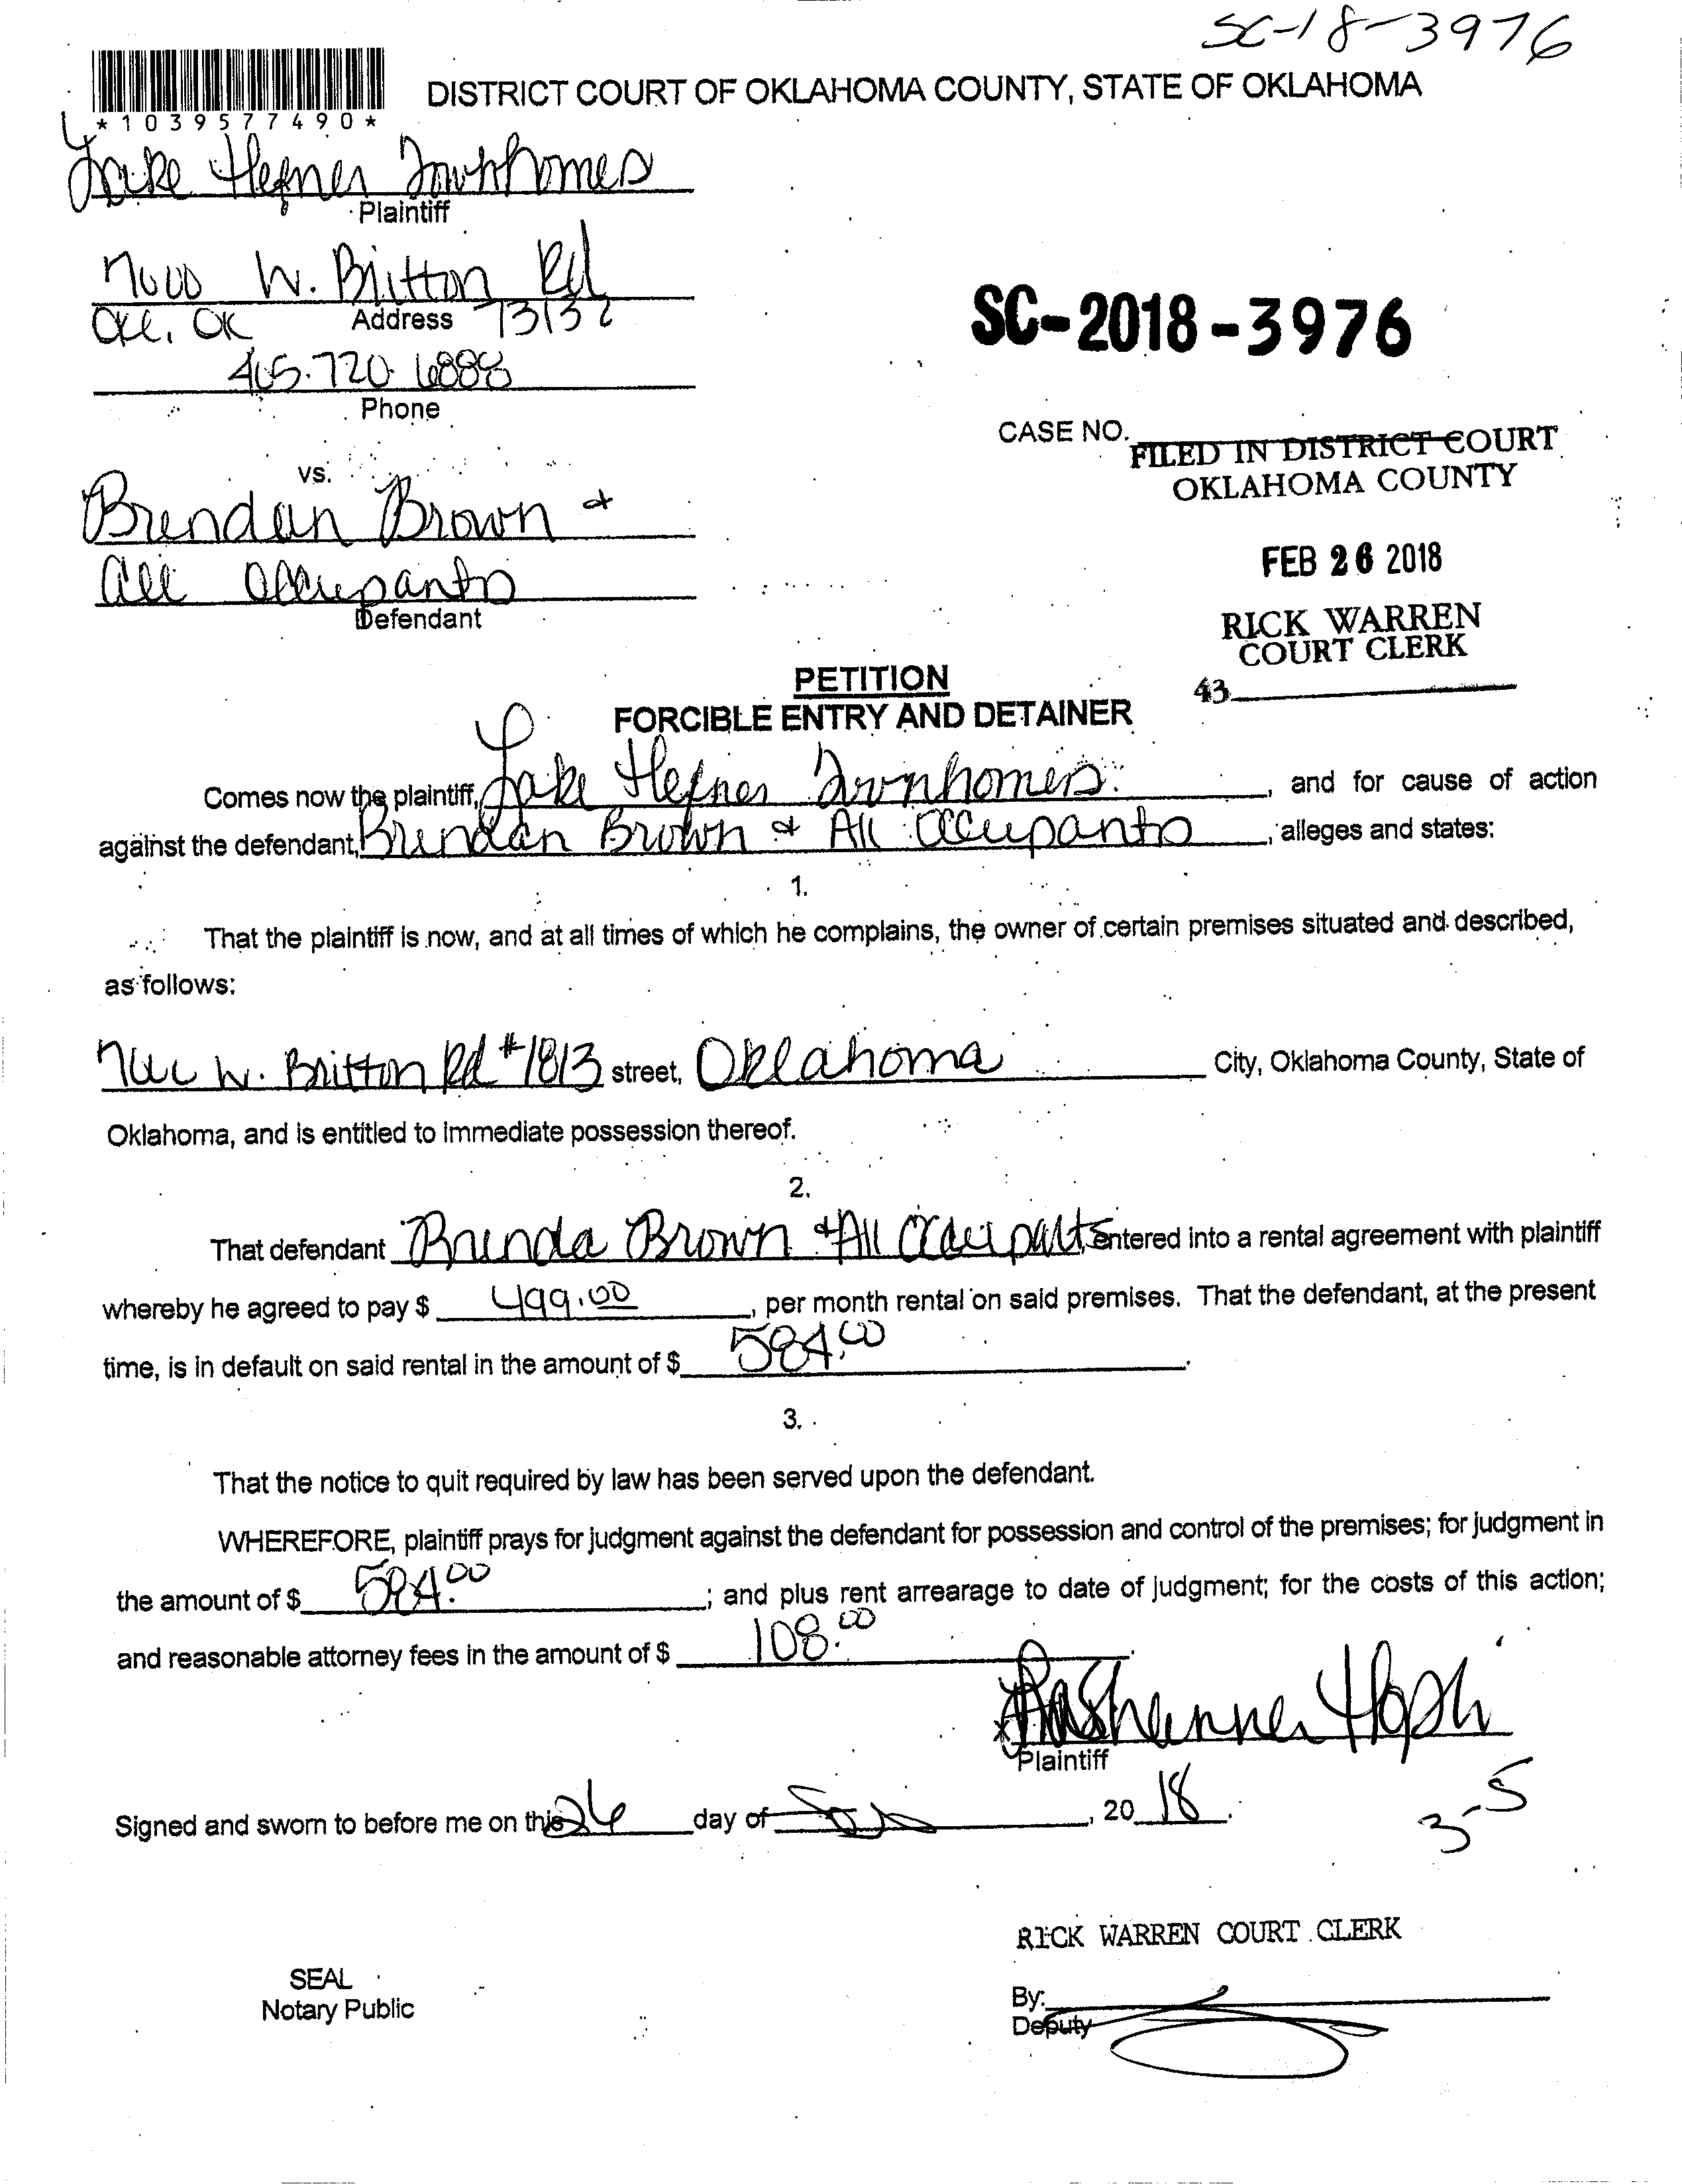 SC-18-3976
*1039577490*
DISTRICT COURT OF OKLAHOMA COUNTY, STATE OF OKLAHOMA
Lake Hefner Townhomes
Plaintiff
W. Britton Rd
OKC. OK Address 73132
405.720.6888
Phone
SC-2018-3976
CASE NO.
FILED IN DISTRICT COURT
OKLAHOMA COUNTY
FEB 26 2018
RICK WARREN
COURT CLERK
43
vs.
Brendan Brown &
all Occupants
Defendant
PETITION
FORCIBLE ENTRY AND DETAINER
Comes now the plaintiff, Lake Hefner Townhomes, and for cause of action
against the defendant, Brendan Brown & All Occupants, alleges and states:
1.
That the plaintiff is now, and at all times of which he complains, the owner of certain premises situated and described,
as follows:
W. Britton Rd #1813 street, Oklahoma City, Oklahoma County, State of
Oklahoma, and is entitled to immediate possession thereof.
2.
That defendant Brenda Brown & All entered into a rental agreement with plaintiff
whereby he agreed to pay $ 499.00, per month rental on said premises. That the defendant, at the present
time, is in default on said rental in the amount of $ 584.00.
3.
That the notice to quit required by law has been served upon the defendant.
WHEREFORE, plaintiff prays for judgment against the defendant for possession and control of the premises; for judgment in
the amount of $ 584.00; and plus rent arrearage to date of judgment; for the costs of this action;
and reasonable attorney fees in the amount of $ 108.00.
Plaintiff
Signed and sworn to before me on this 26 day of, 20 18.
3-5
RICK WARREN COURT CLERK
SEAL
Notary Public
By:
Deputy